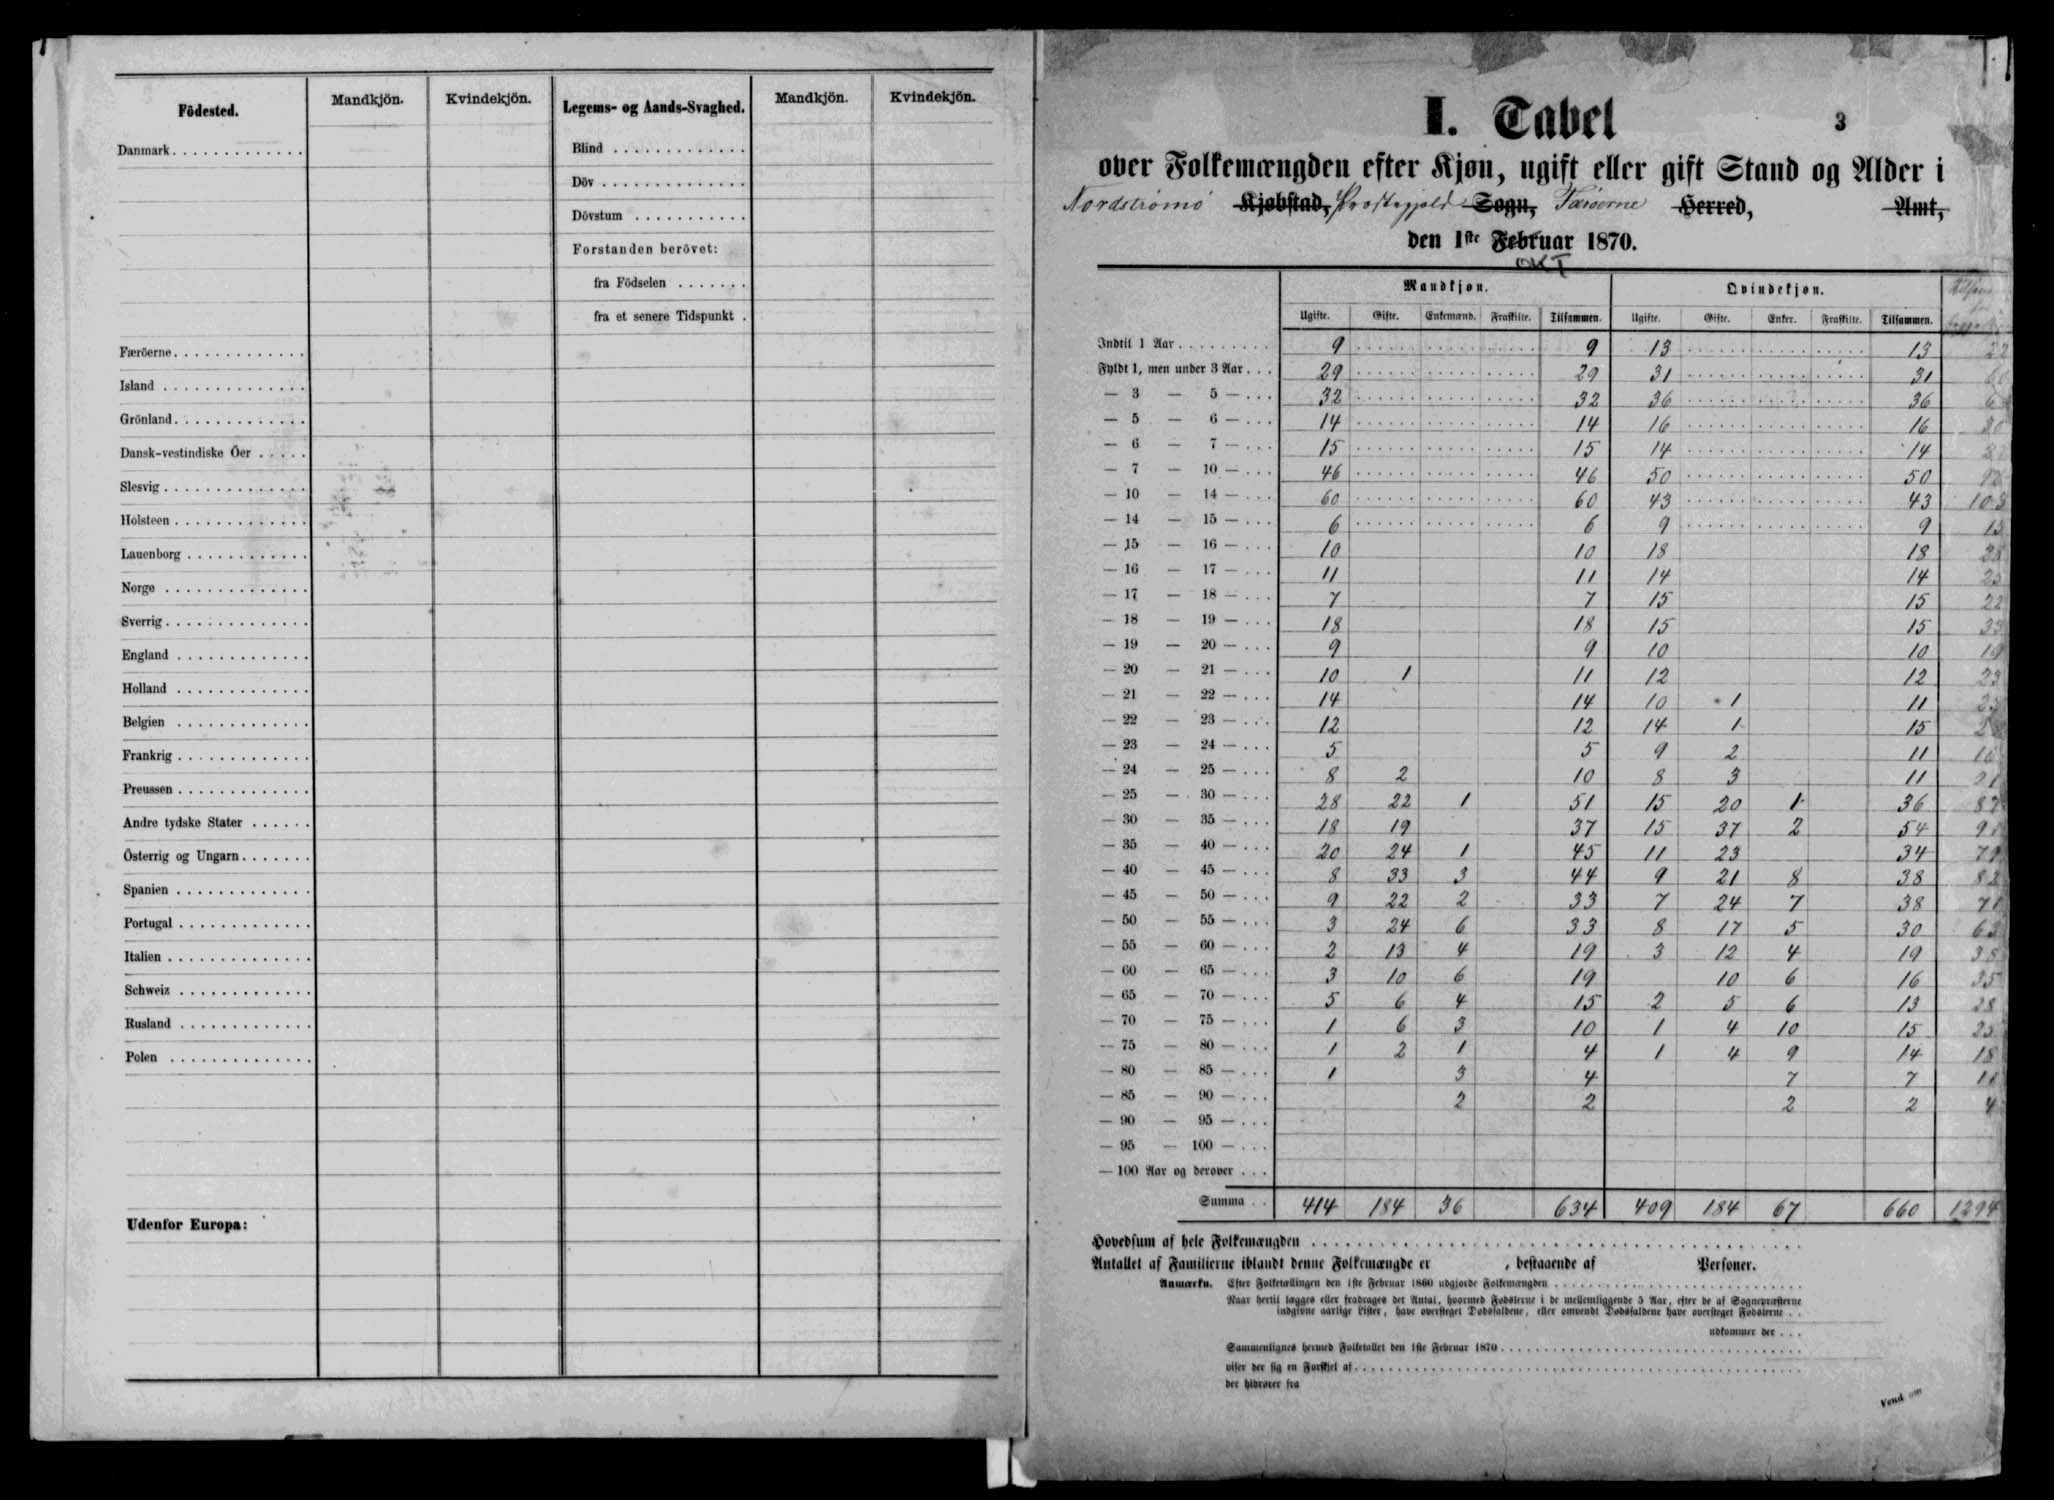 Födested. Mandkjön. Kvindekjön. Legems- og Aands-Svaghed. Mandkjön. Kvindekjön.
Danmark Blind
Döv
Dövstum
Forstanden berövet:
fra Födselen
fra et senere Tidspunkt
Færöerne
Island
Grönland
Dansk-vestindiske Öer
Slesvig
Holsteen
Lauenborg
Norge
Sverrig
England
Holland
Belgien
Frankrig
Preussen
Andre tydske Stater
Österrig og Ungarn
Spanien
Portugal
Italien
Schweiz
Rusland
Polen
Udenfor Europa:
I. Tabel 3
over Folkemængden efter Kjøn, ugift eller gift Stand og Alder i
Nordströmö Kjøbstad, Præstegjeld Sogn, Færöerne Herred, Amt,
den 1ste Februar 1870.
OKT
Mandkjøn. Qvindekjøn.
Ugifte. Gifte. Enkemænd. Fraskilte. Tilsammen. Ugifte. Gifte. Enker. Fraskilte. Tilsammen.
Indtil 1 Aar 9 9 13 13 22
Fyldt 1, men under 3 Aar 29 29 31 31
— 3 — 5 — 32 32 36 36
— 5 — 6 — 14 14 16 16
— 6 — 7 — 15 15 14 14
— 7 — 10 — 46 46 50 50 96
— 10 — 14 — 60 60 43 43 103
— 14 — 15 — 6 6 9 9 15
— 15 — 16 — 10 10 18 18 28
— 16 — 17 — 11 11 14 14 25
— 17 — 18 — 7 7 15 15 22
— 18 — 19 — 18 18 15 15 33
— 19 — 20 — 9 9 10 10 19
— 20 — 21 — 10 1 11 12 12 23
— 21 — 22 — 14 14 10 1 11 25
— 22 — 23 — 12 12 14 1 15
— 23 — 24 — 5 5 9 2 11 16
— 24 — 25 — 8 2 10 8 3 11 21
— 25 — 30 — 28 22 1 51 15 20 1 36 87
— 30 — 35 — 18 19 37 15 37 2 54 91
— 35 — 40 — 20 24 1 45 11 23 34 79
— 40 — 45 — 8 33 3 44 9 21 8 38 82
— 45 — 50 — 9 22 2 33 7 24 7 38 71
— 50 — 55 — 3 24 6 33 8 17 5 30 63
— 55 — 60 — 2 13 4 19 3 12 4 19 38
— 60 — 65 — 3 10 6 19 10 6 16 35
— 65 — 70 — 5 6 4 15 2 5 6 13 28
— 70 — 75 — 1 6 3 10 1 4 10 15 25
— 75 — 80 — 1 2 1 4 1 4 9 14 18
— 80 — 85 — 1 3 4 7 7 11
— 85 — 90 — 2 2 2 2 4
— 90 — 95 —
— 95 — 100 —
— 100 Aar og derover
Summa 414 184 36 634 409 184 67 660 1294
Hovedsum af hele Folkemængden
Antallet af Familierne iblandt denne Folkemængde er , bestaaende af Personer.
Anmærkn. Efter Folketællingen den 1ste Februar 1860 udgjorde Folkemængden
Naar hertil lægges eller fradrages det Antal, hvormed Fødslerne i de mellemliggende 5 Aar, efter de af Sognepræsterne
indgivne aarlige Lister, have oversteget Dødsfaldene, eller omvendt Dødsfaldene have oversteget Fødslerne
udkommer der
Sammenlignes hermed Folketallet den 1ste Februar 1870
viser der sig en Forskjel af
der hidrører fra
Vend om